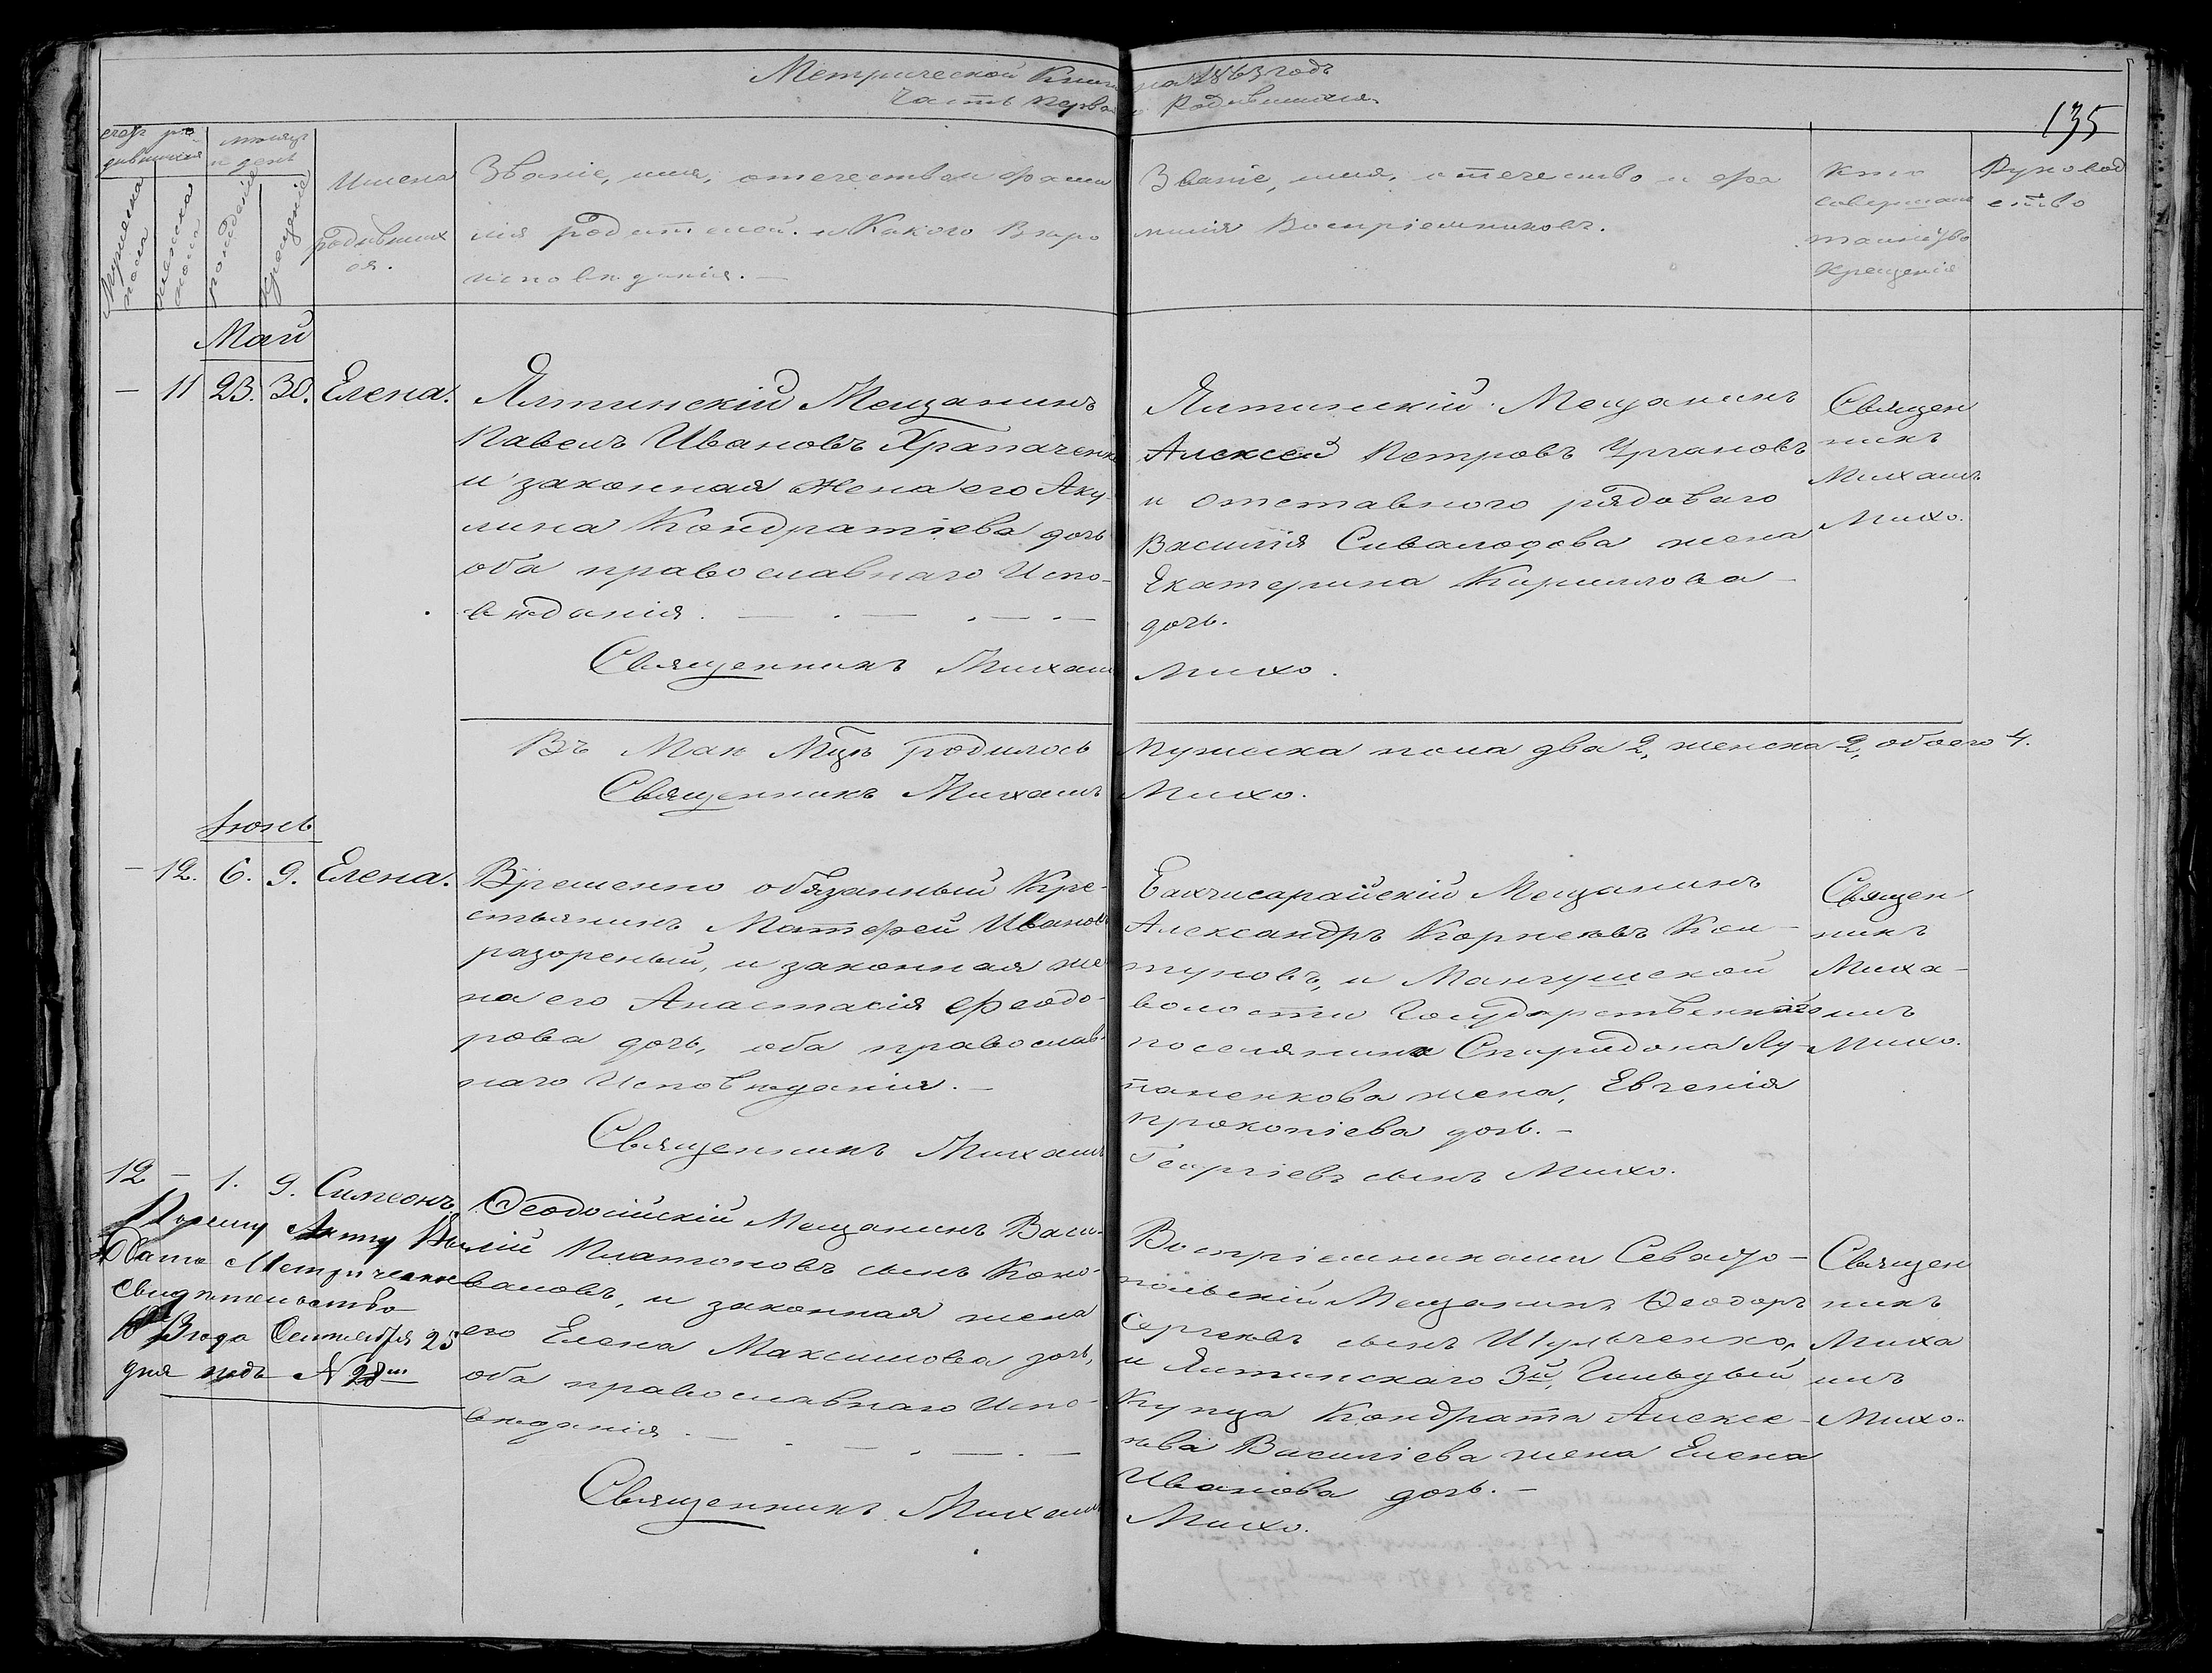 Метрической Книги на 1863 годъ
Часть Первая О Родившихся.
135
счетъ ро-
дившихся
мѣсяцъ
и день
Мужеска
пола
женска
пола
рожденіе
крещеніе
Имена
родивших
ся.
Званіе, имя, отечество и фами
лія родителей. и Какого Вѣро
исповѣданія. —
Званіе, имя, отечество и фа
милія Воспріемниковъ.
Кто
совершалъ
таинство
крещенія
Руковод
ство
Май
— 11 23. 30. Елена.
Ялтинскій Мещанинъ
Павелъ Ивановъ Храпаченко
и законная жена его Аку-
лина Кондратіева дочь
оба православнаго Испо-
вѣданія. — . — . — . —
Священникъ Михаилъ Михо.
Ялтинскій Мещанинъ
Алексей ПетровъУргановъ
и отставного рядоваго
Василія Сиваподова жена
Екатерина Кириллова —
дочь.
Священ
никъ
Михаилъ
Михо.
Въ Маѣ Мцѣ родилось Мужеска пола два 2, женска 2, обоего 4.
Священникъ Михаилъ Михо.
Іюнь
— 12. 6. 9. Елена.
Временно обязанный Кре-
стьянинъ Матфей Ивановъ
разореный, и законная же
на его Анастасія Феодо-
рова дочь, оба православ-
наго Исповѣданія. —
Священникъ Михаилъ Георгіевъ сынъ Михо.
Бахчисарайскій Мещанинъ
Александръ Корнеевъ Кол-
туновъ, и Мангушской
волости Государственнаго
поселянина Спиридона Лу-
паненкова жена, Евгенія
Прокопіева дочь. —
Священ
никъ
Миха-
илъ
Михо.
12 — 1. 9. Симеонъ.
Ѳеодосійскій Мещанинъ Васи-
лій Платоновъ сынъ Коко-
валовъ, и законная жена
его Елена Максимова дочь,
оба православнаго Испо-
вѣданія. — . — . — . —
Священникъ Михаилъ Михо.
Воспріемниками Севасто-
польскій Мещанинъ Ѳеодоръ
Сергеевъ сынъ Шульченко,
и Ялтинскаго 3й, Гильдьій
Купца Кондрата Алексе-
ева Василіева жена Елена
Иванова дочь. —
Священ
никъ
Миха
илъ
Михо.
По сему Акту Вы
дато Метрическое
свидѣтельство
года Сентября 25
дня подъ № 28м